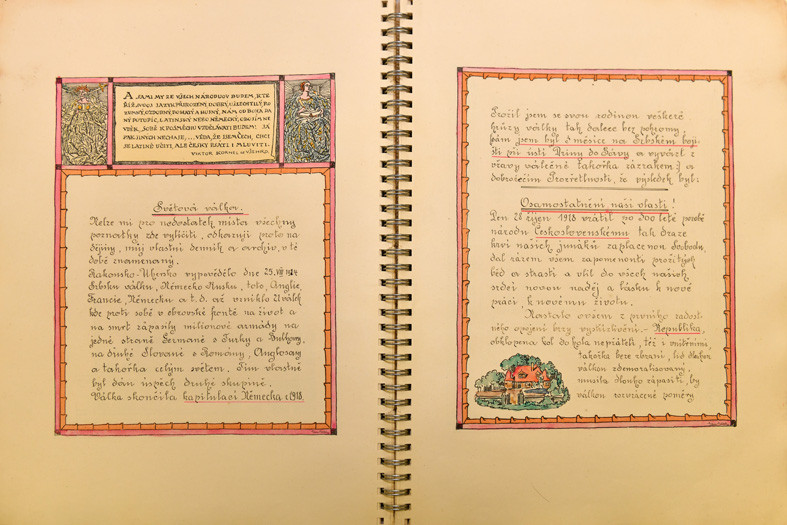 A SAMI MY ZE VŠECH NÁRODUOV BUDEM, KTE
ŘÍŽ SVOGA JAZYK PŘIROZENÝ, DOBRÝ, UŠLECHTILÝ, RO
ZUMNÝ, OZDOBNÝ, BOHATÝ A HOJNÝ, NÁM OD BOHA DA
NÝ POTUPÍC, LATINSKÝ NEBO NĚMECKÝ,
VDĚK, SOBĚ K POSMĚCHU VZDĚLÁVATI BUDEM: JÁ
PAK JINÝCH NECHAJE, ... VĚDA, ŽE ISEM ČECH, CHCI
SE LATINĚ UČITI, ALE ČESKY PSÁTI I MLUVITI.
VIKTOR KORNEL Z VŠEHRD.
Světová válka.
Nelze mi pro nedostatek místa všechny
poznatky zde vylíčiti, odkazuji proto na
dějiny, můj vlastní denník a archiv, v té
době znamenaný.
Rakousko-Uhersko vypovědělo dne
Srbsku válku, Německo Rusku, toto, Anglie,
Francie, Německu a t. d. až vzniklo
kde proti sobě v obrovské frontě na život a
na smrt zápasily milionové armády na
jedné straně Germané s Turky a Bulhary,
na druhé Slované s Romány, Anglosasy
a takořka celým světem. Tím vlastně
byl dán úspěch druhé skupině.
Válka skončila kapitulací Německa r. 1918.
Prožil jsem se svou rodinou veškeré
hrůzy války tak dalece bez pohromy,
jsem byl měsíce na Srbském boji-
šti při ústí Driny do Sávy a vyvázl z
vřavy válečné takořka zázrakem a
dobrotivou Prozřetelností, že výsledek byl:
Osamostatnění naší vlasti!
Den 28 říjen 1918 vrátil po 300 leté porobě
národu Československému tak draze
krví našich junáků zaplacenou svobodu,
dal rázem všem zapomenouti prožitých
běd a strastí a vlil do všech našich
srdcí novou naděj a lásku k nové
práci k novému životu.
Nastalo ovšem z prvního radost-
ného opojení brzy vystřízlivění. - Republika,
obklopena kol do kola nepřáteli, též i vnitřními,
takořka beze zbraní, lid dlouhou
válkou zdemoralisovaný,
musila dlouho zápasiti, by
válkou rozvrácené poměry